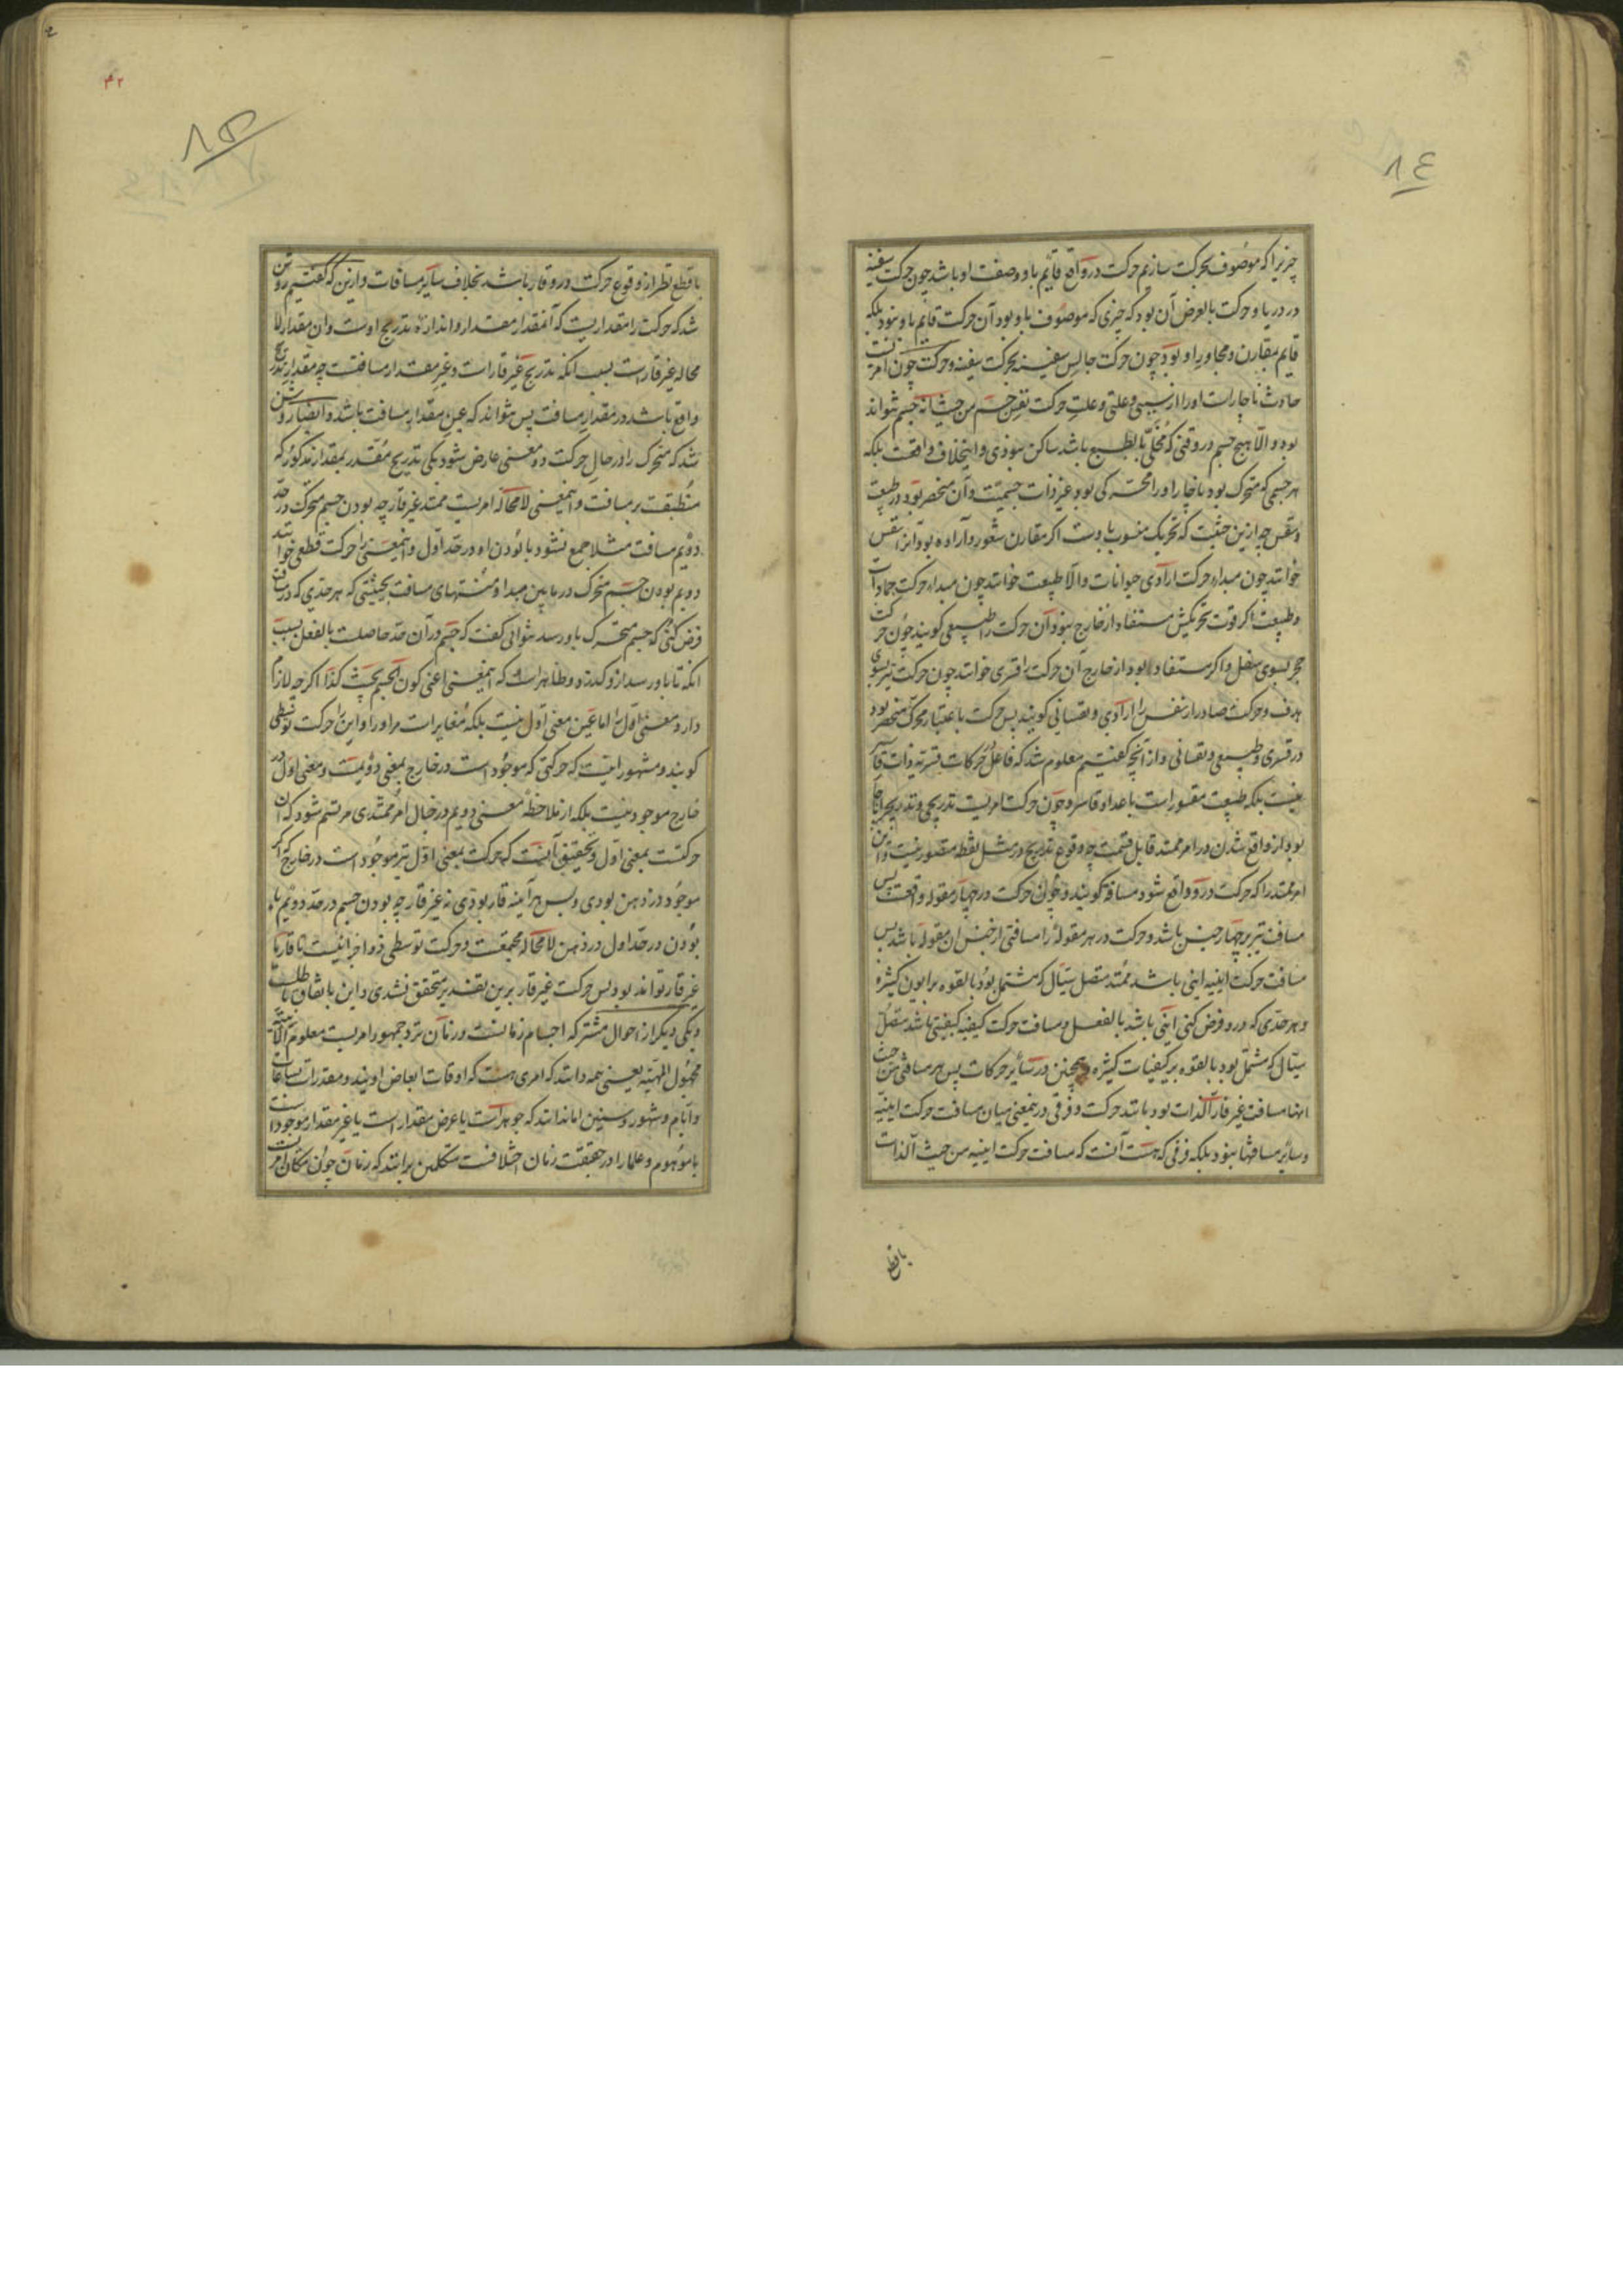 ٨٤
چیزیرا که موصوف بحرکت سازیم حرکت در واقع قایم باو و صفت او باشد چون حرکت سفینه
در دریا و حرکت بالعرض آن بود که چیزی که موصوف باو بود آن حرکت قایم باو نبود بلکه
قایم بمقارن و مجاور او بود چون حرکت جالس سفینه بحرکت سفینه و حرکت چون امریست
حادث ناچارست اورا از سببی و علتی و علت حرکت نفس جسم من حیث انه جسم نتواند
بود و الّا هیچ جسم در وقتی که مخلّی بالطبع باشد ساکن نبودی و اینخلاف واقعست بلکه
هر جسمی که متحرک بود ناچار اورا محرکی بود غیر ذات جسمیت و آن منحصر بود در طبیعت
و نفس چه ازین حیثیت که تحریک منسوب باوست اگر مقارن شعور و اراده بود آنرا نفس
خوانند چون مبداء حرکت ارادی حیوانات و الّا طبیعت خوانند چون مبداء حرکت جمادات
و طبیعت اگر قوت تحریکش مستفاد از خارج نبود آن حرکت را طبیعی گویند چون حرکت
حجر بسوی سفل و اگر مستفاد بود از خارج آن حرکت را قسری خوانند چون حرکت تیر بسوی
هدف و حرکت صادر از نفس را ارادی و نفسانی گویند پس حرکت باعتبار محرک منحصر بود
در قسری و طبیعی و نفسانی و از آنچه گفتیم معلوم شد که فاعل در حرکات قسریه ذات قاسر
نیست بلکه طبیعت مقسور است باعداد قاسر و چون حرکت امریست تدریجی و تدریجی را ناچار
بود از واقع شدن در امر ممتد قابل قسمت چه وقوع تدریج در مثل نقطه متصور نیست و این
امر ممتد را که حرکت درو واقع شود مسافة گویند و چون حرکت در چهار مقوله واقعست پس
مسافت نیز بر چهار جنس باشد و حرکت در هر مقوله را مسافتی از جنس آن مقوله باشد پس
مسافت حرکت اینیه اینی باشد ممتد متصل سیّال که مشتمل بود بالقوه بر ایون کثیره
و هر حدّی که درو فرض کنی اینی باشد بالفعل و مسافت حرکت کیفیه کیفیتی باشد متصل
سیّال که مشتمل بود بالقوه بر کیفیات کثیره و همچنین در سایر حرکات پس هر مسافتی من حیث
انها مسافت غیر قار الذات بود مانند حرکت و فرقی درینمعنی میان مسافت حرکت اینیه
و سایر مسافتها نبود بلکه فرقی که هست آنست که مسافت حرکت اینیه من حیث الذات
با قطع
٤٢
٨٥
با قطع نظر از وقوع حرکت درو قار باشد بخلاف سایر مسافات و ازین که گفتیم روشن
شد که حرکت را مقداریست که آنمقدار مقدار و اندازه تدریج اوست و آن مقدار لا
محاله غیر قار است بسبب آنکه تدریج غیر قار است و غیر مقدار مسافتست چه مقدار تدریج
واقع باشد در مقدار مسافت پس نتواند که عین مقدار مسافت باشد و ایضا روشن
شد که متحرک را در حال حرکت دو معنی عارض شود یکی تدریج مقدر بمقدار مذکور که
منطبقست بر مسافت و اینمعنی لا محاله امریست ممتد غیر قار چه بودن جسم متحرک در حدّ
دویم مسافت مثلا جمع نشود با بودن او در حدّ اول و اینمعنی را حرکت قطعی خوانند
دویم بودن جسم متحرک در ما بین مبداء و منتهای مسافت بحیثیتی که هر حدّی که در مسافت
فرض کنی که جسم متحرک باو رسد نتوانی گفت که جسم در آن حدّ حاصلست بالفعل بسبب
آنکه تا باو رسد ازو گذرد و ظاهر است که اینمعنی اعنی کون الجسم بحیث کذا اگرچه لازم
دارد معنی اول را اما عین معنی اول نیست بلکه مغایر است مر اورا و این را حرکت توسطی
گویند و مشهور اینست که حرکتی که موجود است در خارج بمعنی دویمست و معنی اول در
خارج موجود نیست بلکه از ملاحظه معنی دویم در خیال امر ممتدی مرتسم شود که آن
حرکتست بمعنی اول و تحقیق آنست که حرکت بمعنی اول نیز موجود است در خارج چه اگر
موجود در ذهن بودی و بس هرآینه قار بودی نه غیر قار چه بودن جسم در حدّ دویم با
بودن در حدّ اول در ذهن لا محاله مجتمعست و حرکت توسطی ذو اجزا نیست تا قار یا
غیر قار تواند بود پس حرکت غیر قار برین تقدیر متحقق نشدی و این باتفاق باطلست
و یکی دیگر از احوال مشترکه اجسام زمانست و زمان نزد جمهور امریست معلوم الانیّه
مجهول المهیّه یعنی همه دانند که امری هست که اوقات ابعاض اویند و مقدر است بساعات
و ایام و شهور و سنین اما ندانند که جوهر است یا عرض مقدار است یا غیر مقدار موجود است
یا موهوم و علما را در حقیقت زمان اختلافست متکلمین برانند که زمان چون مکان امریست